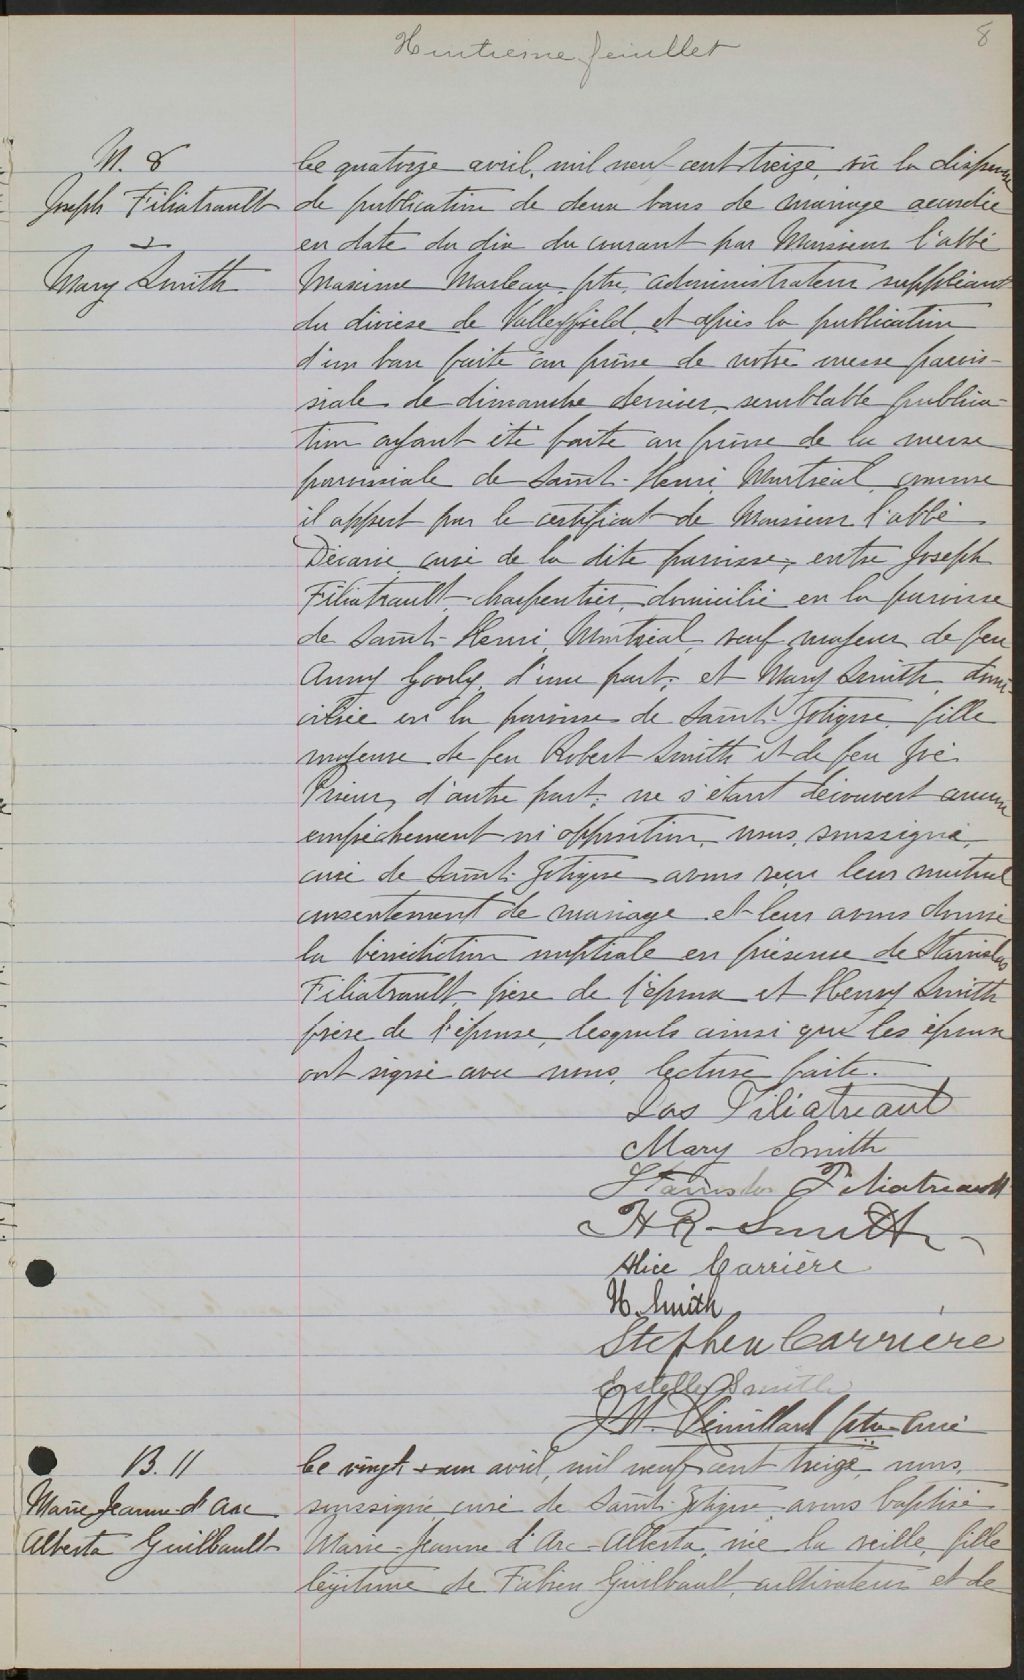 Huitième feuillet
8
M. 8
Joseph Filiatrault
&
Mary Smith
Le quatorze avril, mil neuf cent treize, vu la dispense
de publication de deux bans de mariage accordée
en date du dix du courant par Monsieur l'abbé
Maxime Marleau ptre, administrateur suppléant
du diocèse de Valleyfield, et après la publication
d'un ban faite au prône de notre messe parois-
siale de dimanche dernier, semblable publica-
tion ayant été faite au prône de la messe
paroissiale de Saint-Henri, Montréal, comme
il appert par le certificat de Monsieur l'abbé
Décarie, curé de la dite paroisse, entre Joseph
Filiatrault, charpentier, domicilié en la paroisse
de Saint-Henri, Montréal, veuf majeur de feu
Anny d'une part; et Mary Smith, domi-
ciliée en la paroisse de Saint-Zotique, fille
majeure de feu Robert Smith et de feu Zoé
Prieur, d'autre part; ne s'étant découvert aucun
empêchement ni opposition, nous, soussigné,
curé de Saint-Zotique avons reçu leur mutuel
consentement de mariage et leur avons donné
la bénédiction nuptiale en présence de Stanislas
Filiatrault, père de l'époux et Henry Smith
frère de l'épouse, lesquels ainsi que les époux
ont signé avec nous, lecture faite.
Jos Filiatreault
Mary Smith
Stanislas Filiatreault
H R Smith
Alice Carrière
H. Smith
Stephen Carrière
Estelle Smith
J. M. Rémillard ptre curé
B. 11
Marie Jeanne-d'Arc
Alberta Guilbault
Le vingt-et-un avril, mil neuf cent treize, nous,
soussigné curé de Saint-Zotique avons baptisé
Marie-Jeanne d'Arc-Alberta, née la veille, fille
légitime de Fabien Guilbault, cultivateur et de